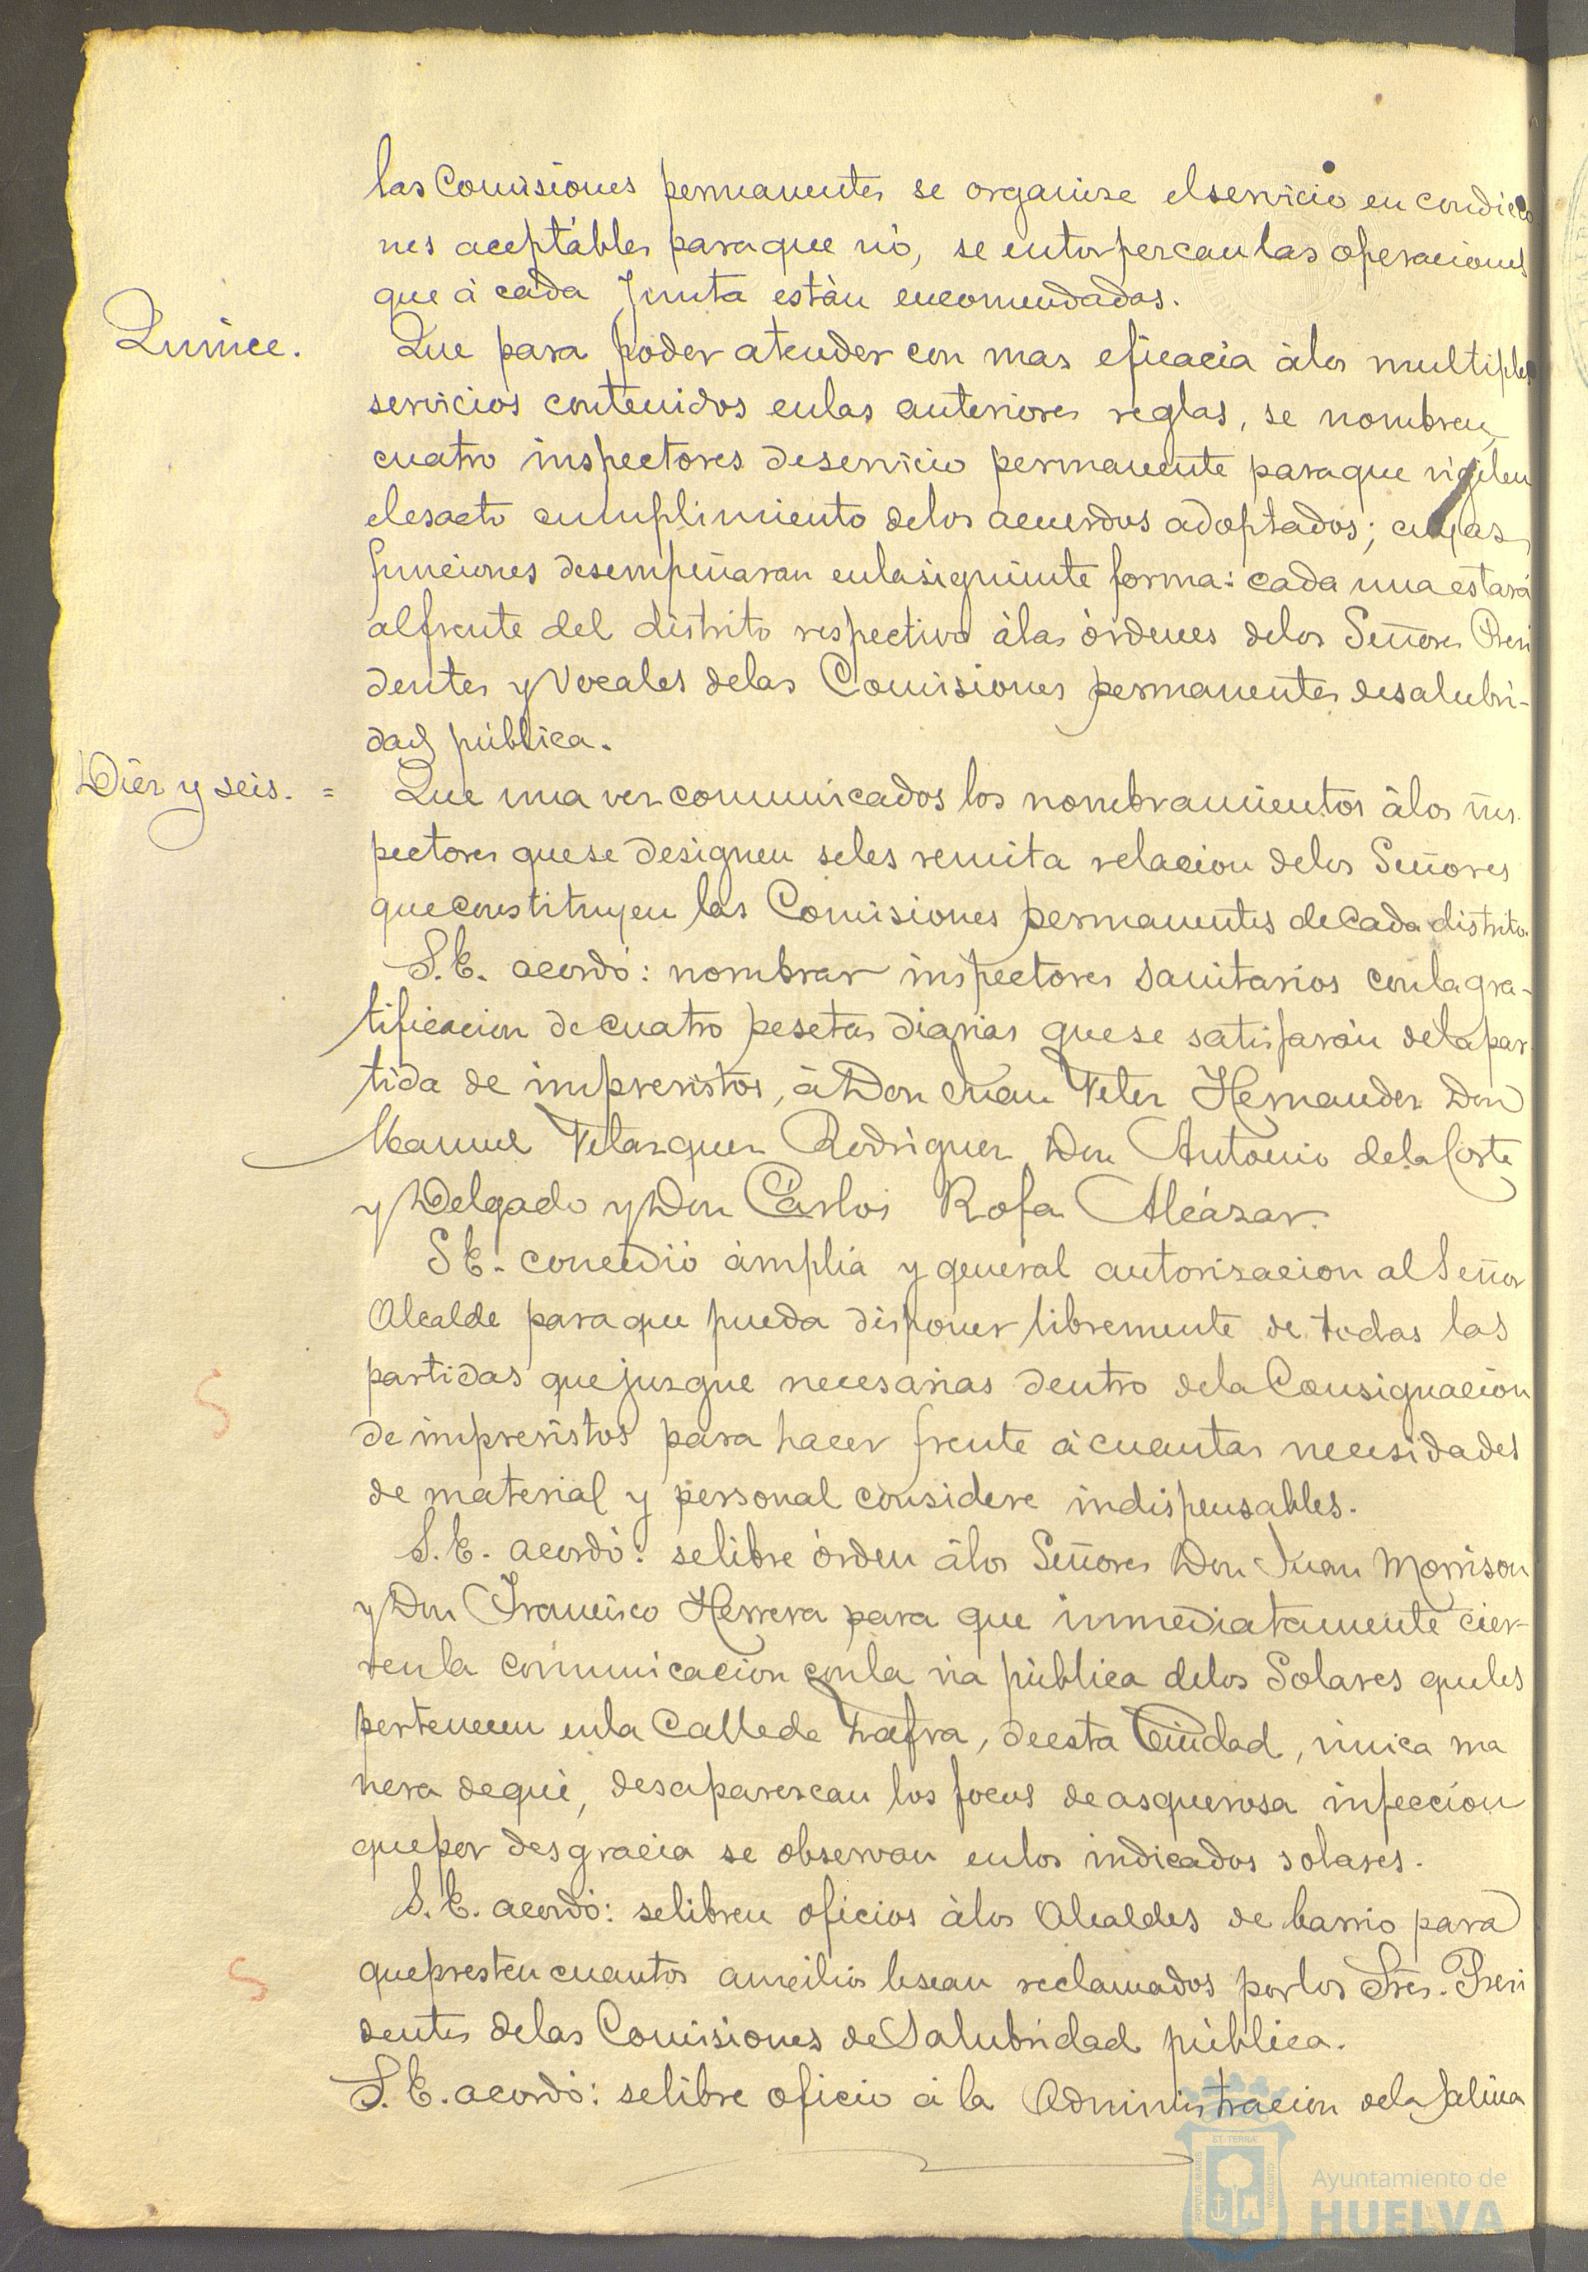 las Comisiones permanentes se organise el servicio en condicio
nes aceptábles para que nó, se entorpezcan las operaciones
que á cada Junta están encomendadas.
Quince. Que para poder atender con mas eficacia á los multiples
servicios contenidos en las anteriores reglas, se nombren
cuatro inspectores de servicio permanente para que vigilen
el esacto cumplimiento de los acuerdos adoptados; cuyas
funciones desempeñaran en la siguiente forma: cada una estará
al frente del distrito respectivo á las órdenes de los Señores Presi
dentes y Vocales de las Comisiones permanentes de salubri-
dad pública.
Diez y seis. = Que una vez comunicados los nombramientos á los ins-
pectores que se designen se les remita relacion de los Señores
que constituyen las Comisiones permanentes de cada distrito.
S. E. acordó: nombrar inspectores sanitarios con la gra-
tificacion de cuatro pesetas diarias que se satisfarán de la par-
tida de imprevistos, á Don Juan Velez Hernandez Don
Manuel Velazquez Rodriguez Don Antonio de la Corte
y Delgado y Don Cárlos Rofa Alcázar.
S E. concedió ámplia y general autorizacion al Señor
Alcalde para que pueda disponer libremente de todas las
partidas que juzgue necesarias dentro de la Consignacion
de imprevistos para hacer frente á cuantas necesidades
de material y personal considere indispensables.
S. E. acordó: se libre órden á los Señores Don Juan Morrison
y Don Francisco Herrera para que inmediatamente cier-
ren la comunicacion con la via pública de los Solares que les
pertenecen en la Calle de Zafra, de esta Ciudad, única ma
nera de que, desaparezcan los focos de asquerosa infeccion
que por desgracia se observan en los indicados solares.
S. E. acordó: se libren oficios á los Alcaldes de barrio para
que presten cuantos auxilios le sean reclamados por los Sres. Presi
dentes de las Comisiones de Salubridad pública.
S. E. acordó: se libre oficio á la Administracion de la Salina
Ayuntamiento de
HUELVA